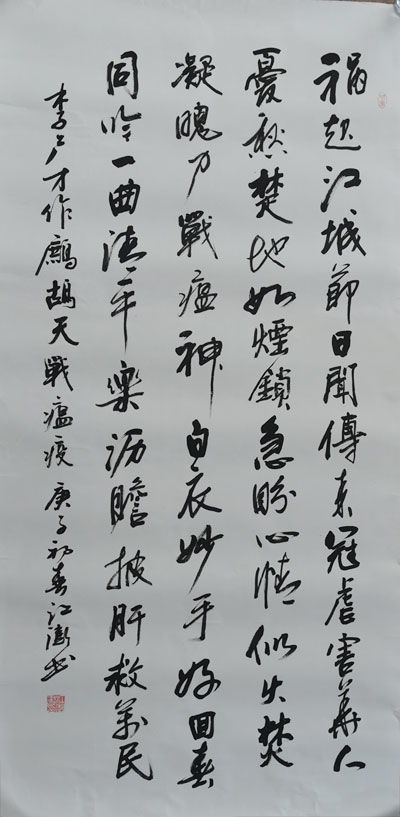 禍起江城節日聞傳来冠虐害華人
憂愁楚地如煙鎖急盼心情似火焚
凝魄力戰瘟神白衣妙手好回春
同吟一曲清平樂沥膽披肝救萬民
李广才作鷓鴣天戰瘟疫庚子初春江濤书